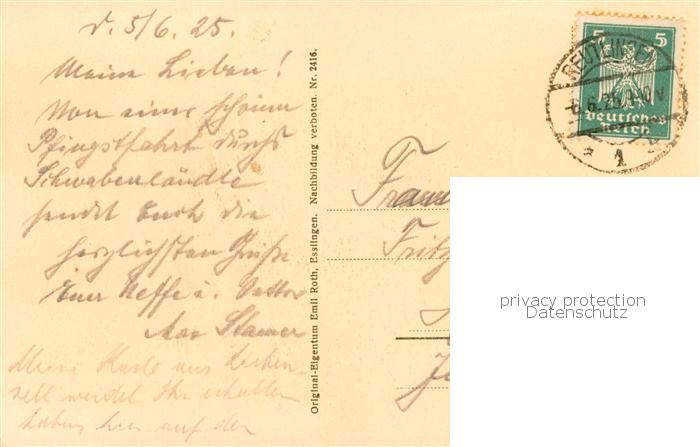 d. 5/6. 25.
Meine Lieben!
Von einer schönen
Pfingstfahrt durchs
Schwabenländle
sendet Euch die
herzlichsten Grüße
Euer Neffe u. Vetter
Max
Meine Karte aus
zell werdet Ihr erhalten
haben auf der
Original-Eigentum Emil Roth, Esslingen. Nachbildung verboten. Nr. 2416.
5 5
Deutsches
Reich
REUTLINGEN
6.6.25
* 1
Fritz
privacy protection
Datenschutz